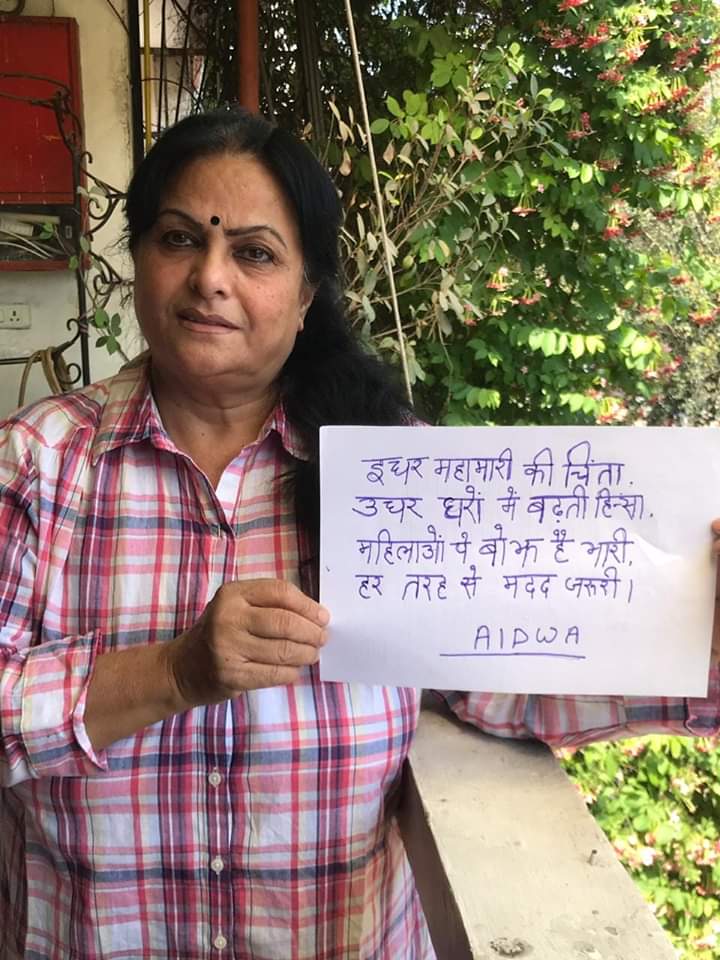 इधर महामारी की चिंता.
उधर घरों में बढ़ती हिन्सा.
महिलाओं पे बोझ है भारी.
हर तरह से मदद जरूरी।
AIDWA